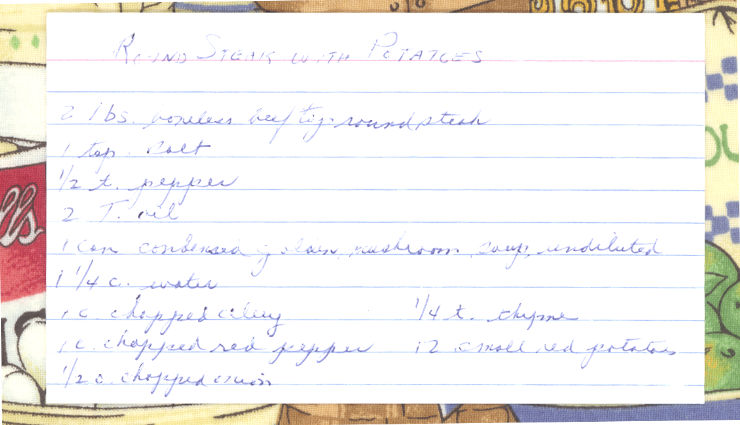 ROUND STEAK WITH POTATOES
2 lbs. boneless beef top round steak
1 tsp. salt
1/2 t. pepper
2 T. oil
1 can condensed golden mushroom soup, undiluted
1 1/4 c. water
1 c. chopped celery 1/4 t. thyme
1 c. chopped red pepper 12 small red potatoes
1/2 c. chopped onion
lls